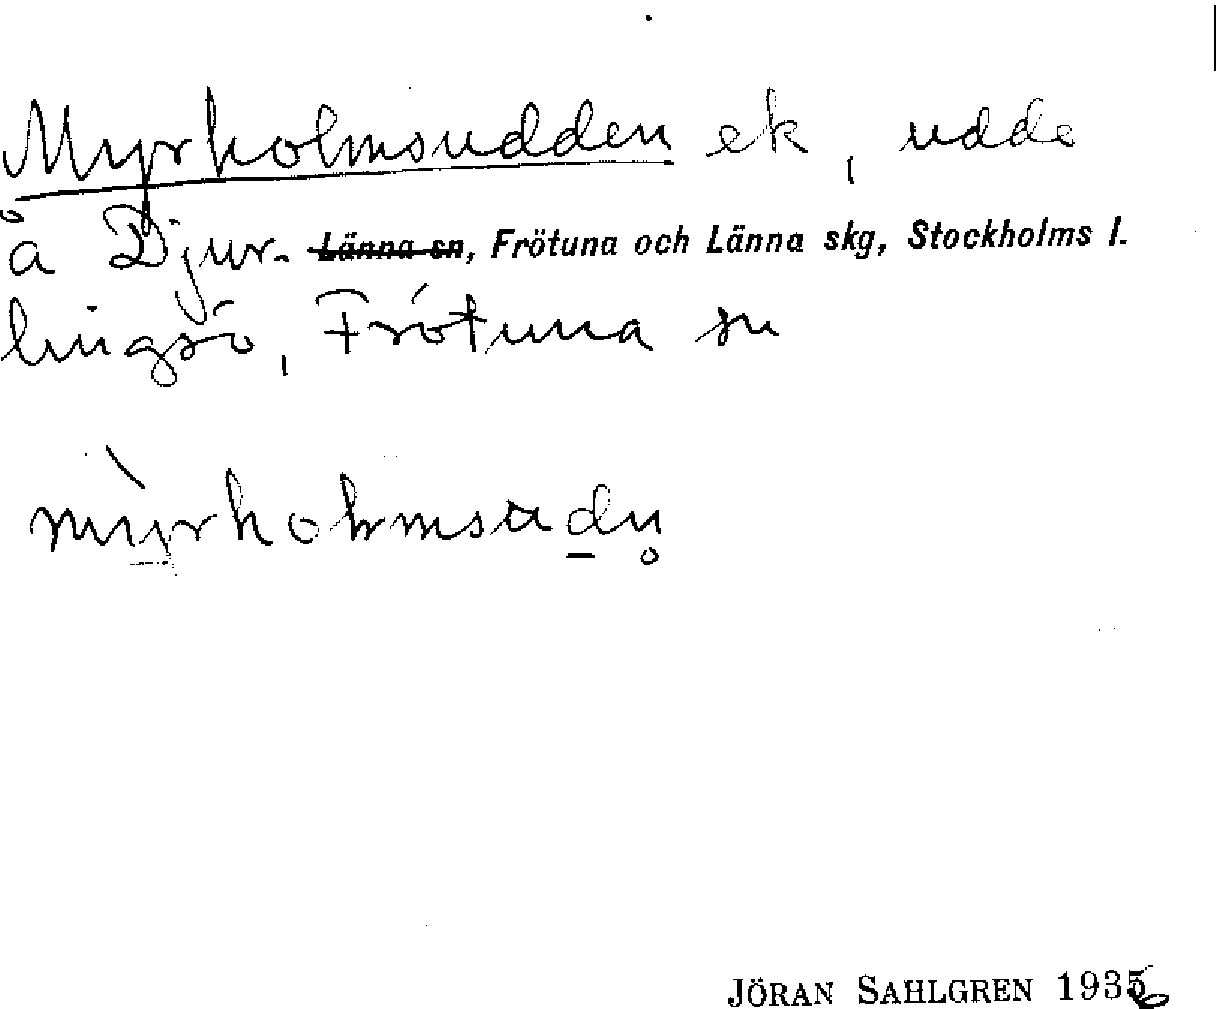 Myrholmsudden ek, udde
å Djur- Länna sn, Frötuna och Länna skg, Stockholms l.
lingsö, Frötuna sn
JÖRAN SAHLGREN 1936